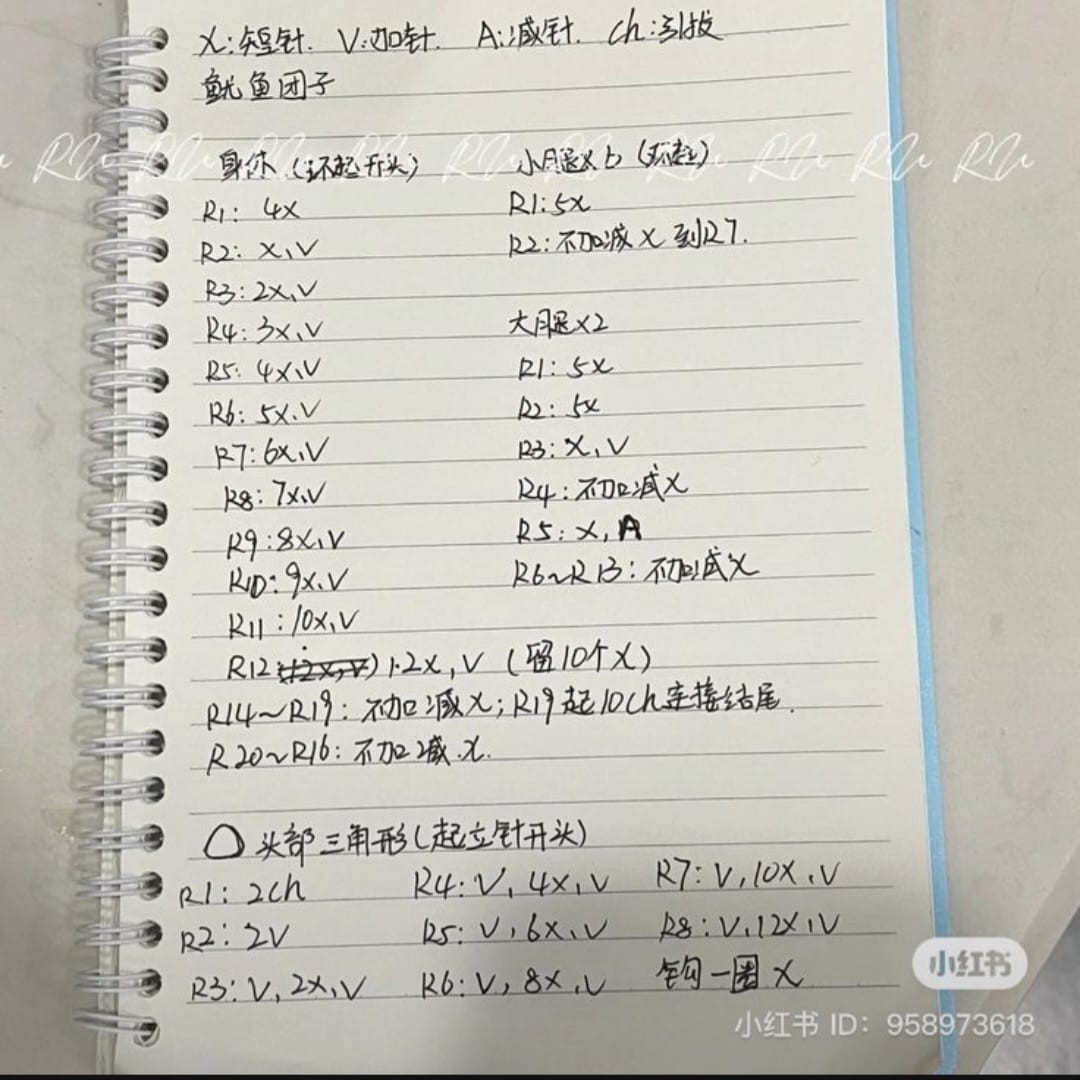 X:短针. V:加针. A:减针. Ch:引拔
鱿鱼团子
RU RU RU RU RU RU RU
身体(环起开头)
R1: 4X
R2: X,V
R3:2X,V
R4:3X,V
R5:4X,V
R6:5X.V
R7:6X,V
R8:7X,V
R9:8X,V
R10:9X,V
R11:10X,V
R12 12X,V (留10个X)
R14~R19: 不加减X;R19起10ch连接结尾.
R20~R16:不加减.X.
小腿X6(环起)
R1:5X
R2:不加减X到R7.
大腿X2
R1:5X
R2:5X
R3:X,V
R4:不加减X
R5:X,A
R6~R13:不加减X
头部三角形(起立针开头)
R1:2ch
R2:2V
R3:V,2X,V
R4:V,4X,V
R5:V,6X,V
R6:V,8X,V
R7:V,10X,V
R8:V,12X,V
钩一圈X
小红书
小红书 ID:958973618